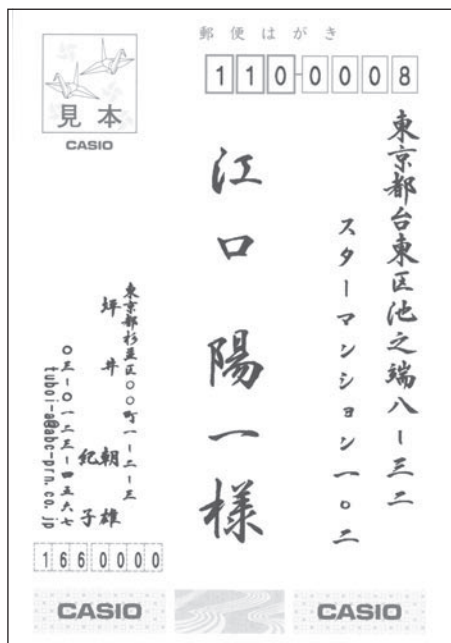 郵便はがき
110-0008
見本
CASIO
東京都台東区池之端八ー三二
スターマンション一〇二
江口陽一様
東京都杉並区〇〇町一ー二ー三
坪井朝雄
紀子
〇三ー〇一二三ー四五六七
tuboi-a@abc-prn.co.jp
1660000
CASIO
CASIO